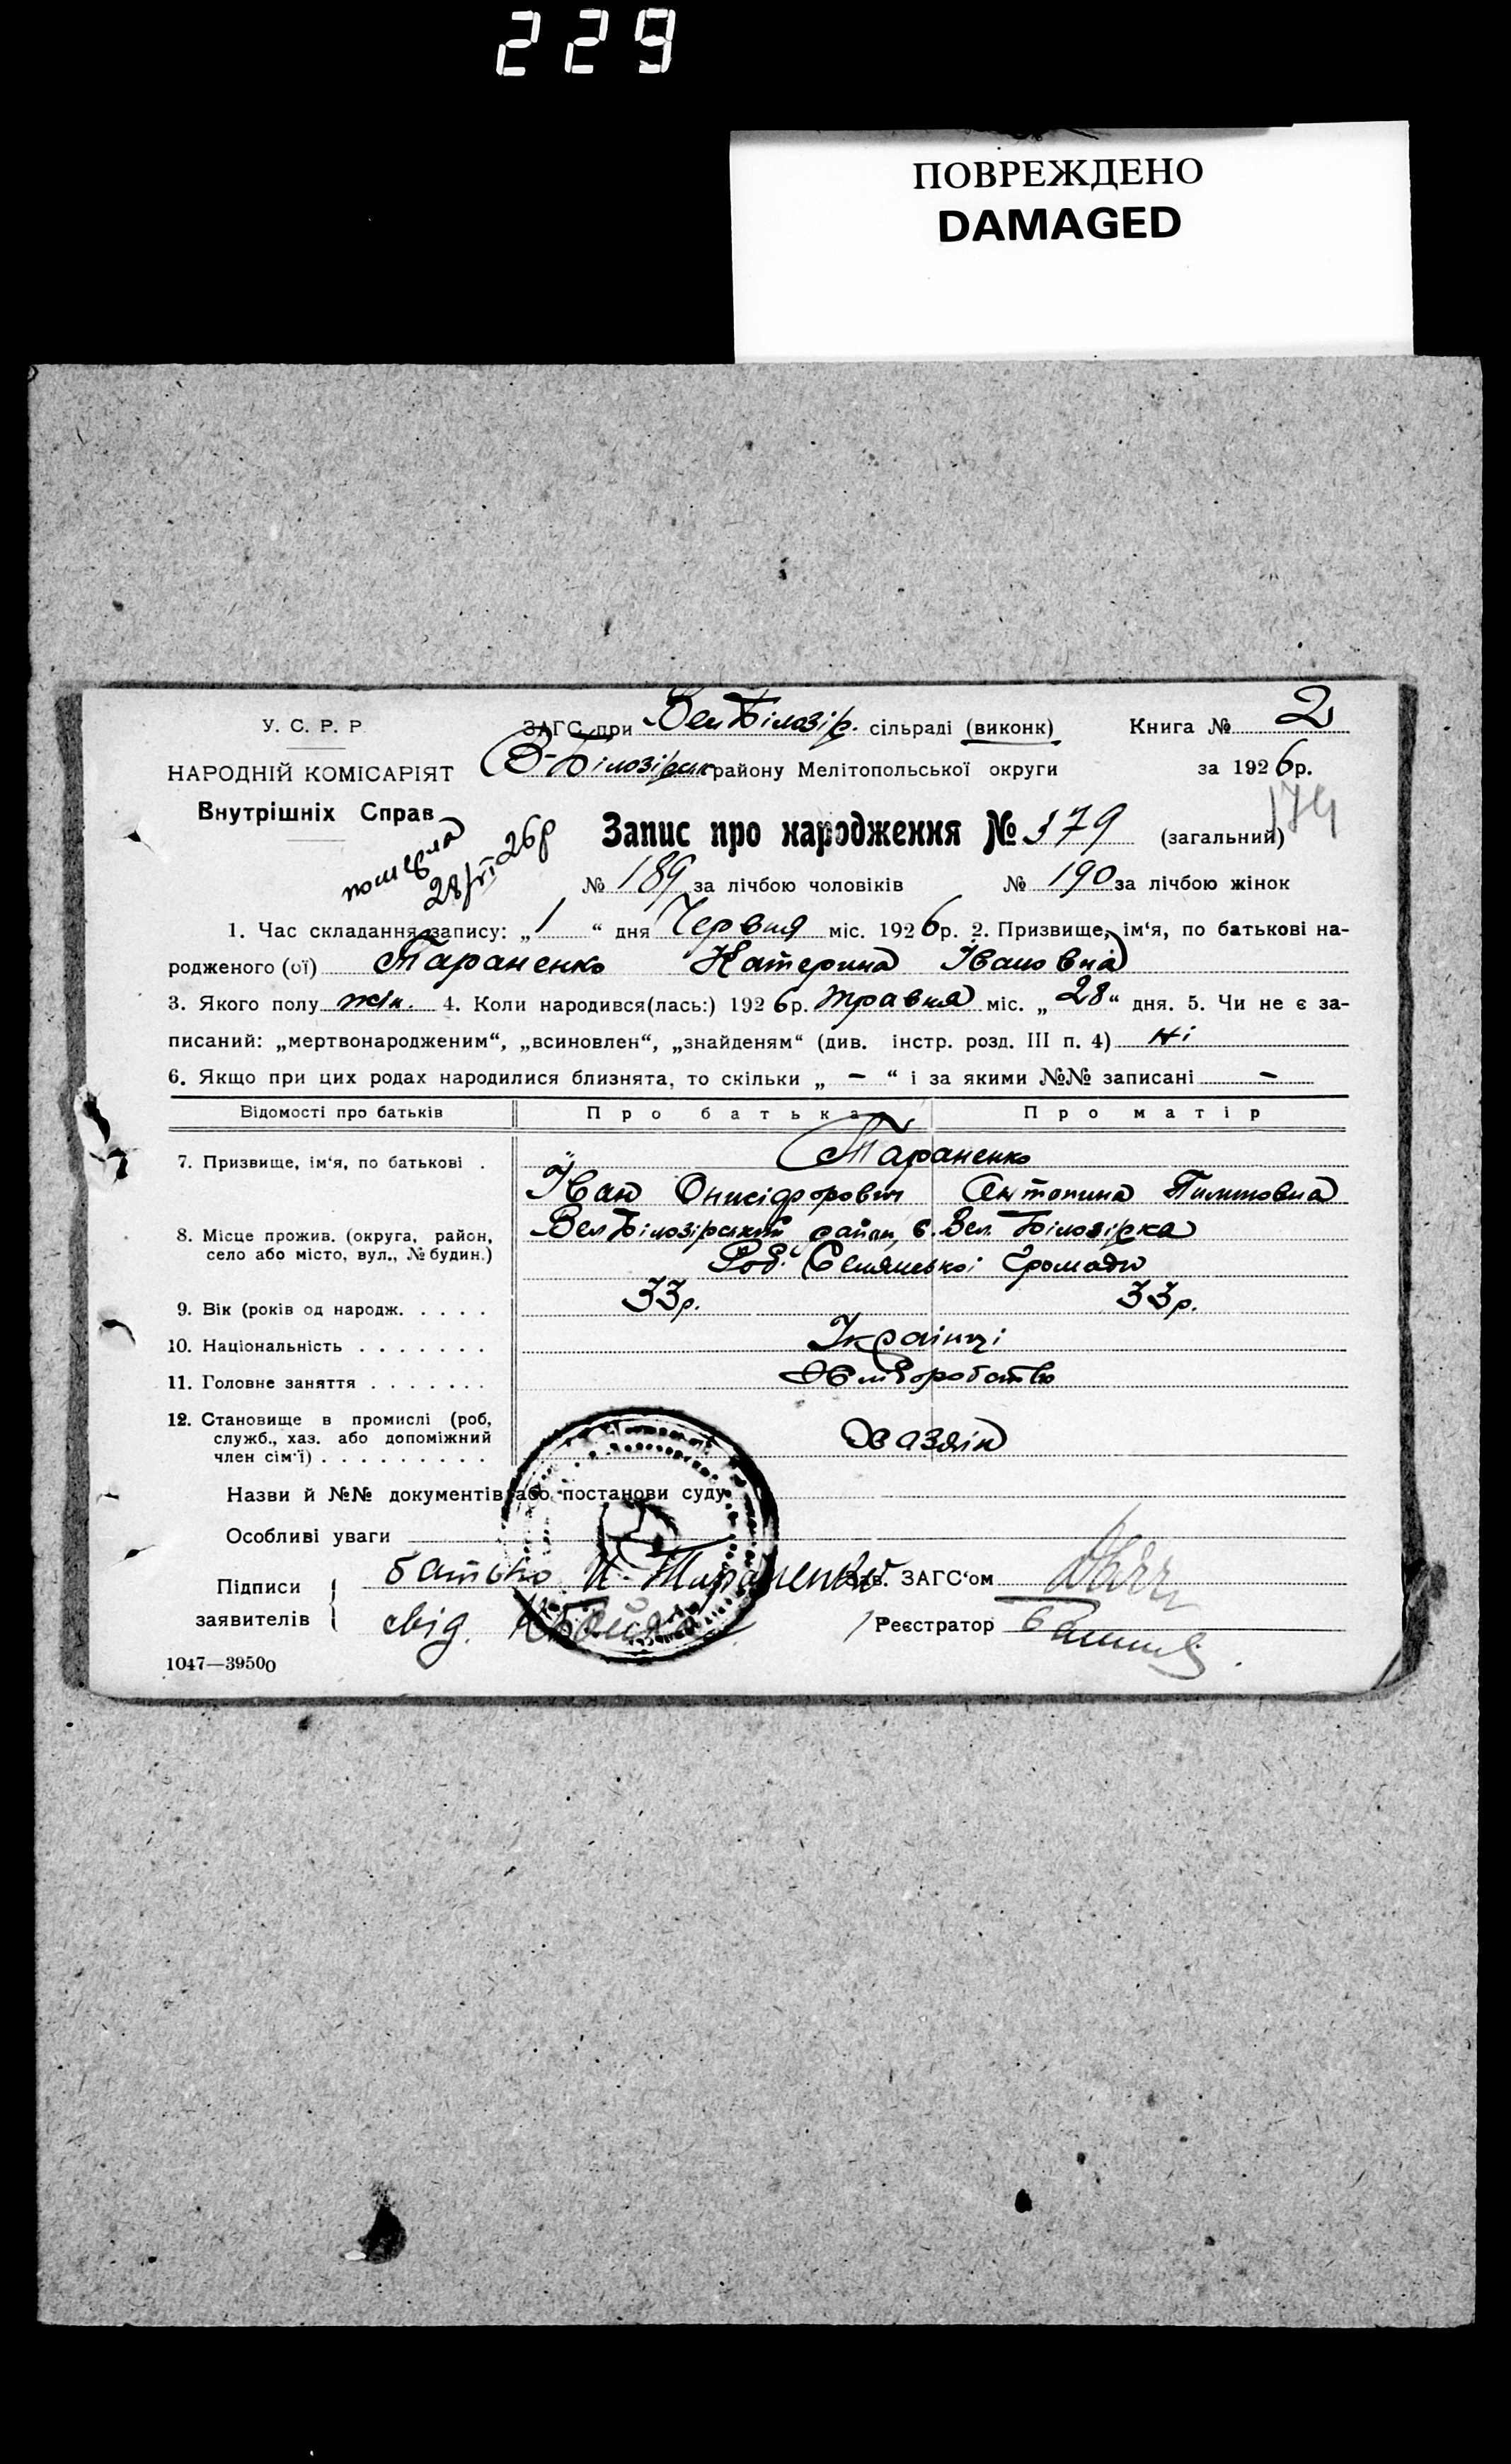 229
ПОВРЕЖДЕНО
DAMAGED
У. С. Р. Р
ЗАГС при Вел Білозір. сільраді (виконк)
Книга № 2
НАРОДНІЙ КОМІСАРІЯТ
В-Білозірськ району Мелітопольської округи
за 1926 р.
Внутрішніх Справ
174
померла
28/VI 26 р
Запис про народження № 379 (загальний)
№ 189 за лічбою чоловіків № 190 за лічбою жінок
1. Час складання запису: „ 1 “ дня Червня міс. 1926 р. 2. Призвище, ім‘я, по батькові на-
родженого (ої) Тараненко Катерина Івановна
3. Якого полу жін. 4. Коли народився(лась:) 1926 р. травня міс. „ 28 “ дня. 5. Чи не є за-
писаний: „мертвонародженим“, „всиновлен“, „знайденям“ (див. інстр. розд. III п. 4) Ні
6. Якщо при цих родах народилися близнята, то скільки „ – “ і за якими №№ записані –
Відомості про батьків Про батька Про матір
7. Призвище, ім‘я, по батькові . Тараненко
Іван Онисіфорович Антонина Пилиповна
8. Місце прожив. (округа, район,
село або місто, вул., № будин.)
Вел Білозірський район, с. Вел. Білозірка
Роб. Селянської Громади
9. Вік (років од народж. . . . . 33 р. 33 р.
10. Національність . . . . . . . Українці
11. Головне заняття . . . . . . . Хліборобство
12. Становище в промислі (роб,
служб., хаз. або допоміжний
член сім‘ї) . . . . . . . . . Хазяін
Назви й №№ документів або постанови суду
Особливі уваги
Підписи
заявителів
батько И Тараненко
свід.
Зав. ЗАГС‘ом
Реєстратор
1047—39500